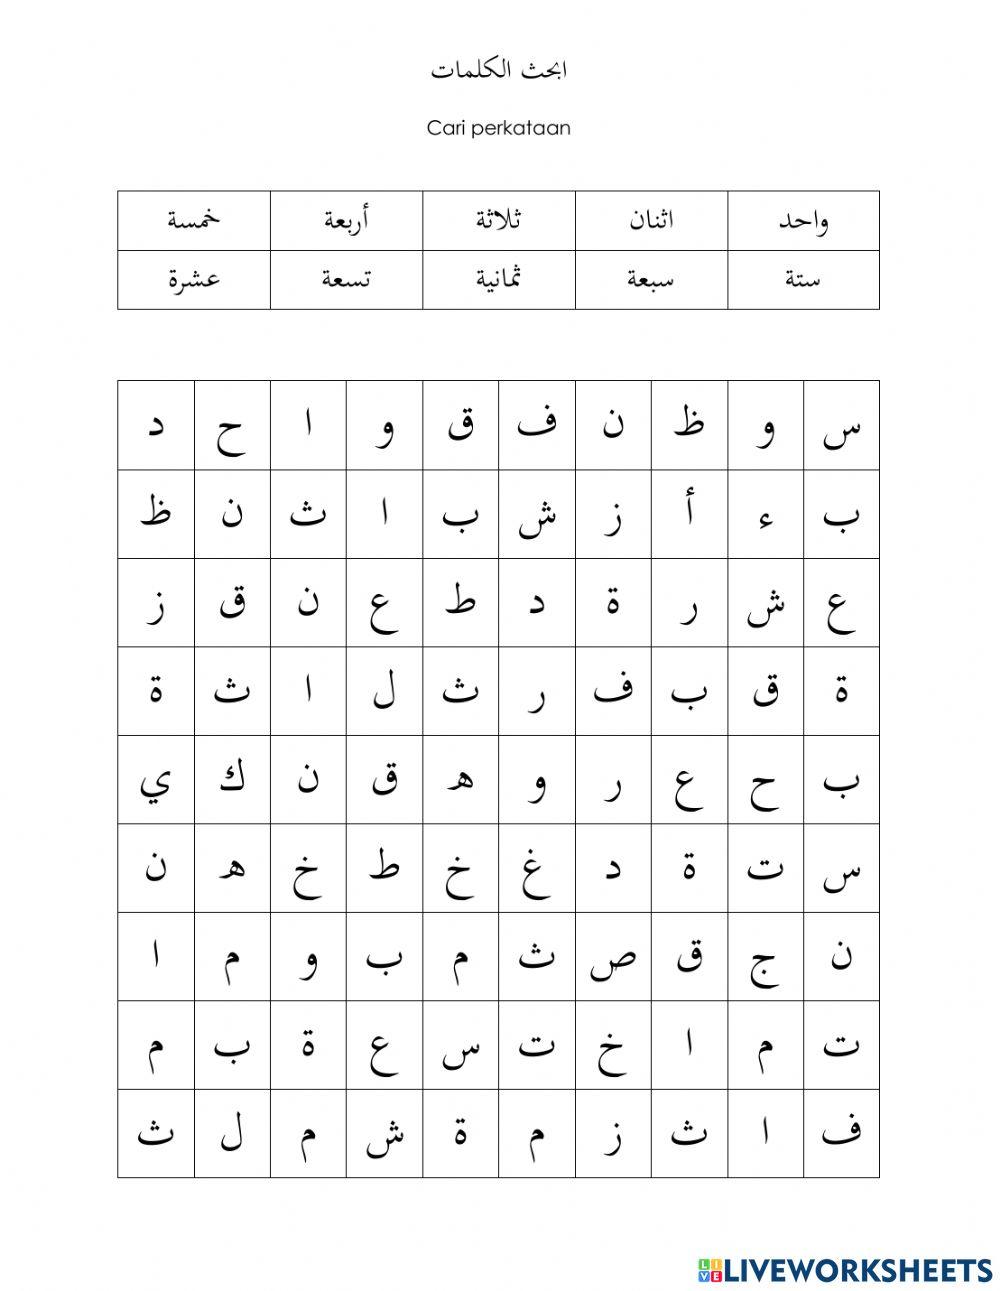 ابحث الكلمات
Cari perkataan
واحد اثنان ثلاثة أربعة خمسة
ستة سبعة ثمانية تسعة عشرة
س و ظ ن ف ق و ا ح د
ب ء أ ز ش ب ا ث ن ظ
ع ش ر ة د ط ع ن ق ز
ة ق ب ف ر ث ل ا ث ة
ب ح ع ر و ه ق ن ك ي
س ت ة د غ خ ط خ ه ن
ن ج ق ص ث م ب و م ا
ت م ا خ ت س ع ة ب م
ف ا ث ز م ة ش م ل ث
LIVE LIVEWORKSHEETS